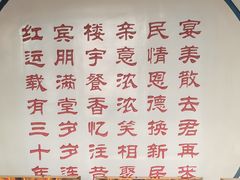 宴美散去君再来
民情恩德换新居
亲意浓浓笑相聚
楼宇餐香忆往昔
宾朋满堂岁岁连
红运载有三十年